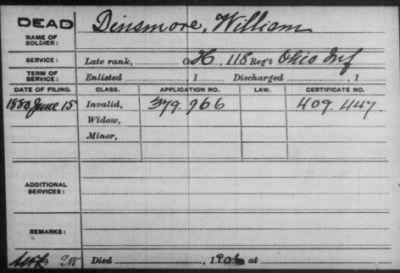 DEAD
NAME OF SOLDIER: Dinsmore, William
SERVICE: Late rank, Co H, 118 Reg't Ohio Inf
TERM OF SERVICE: Enlisted , 1 Discharged , 1
DATE OF FILING. CLASS. APPLICATION NO. LAW. CERTIFICATE NO.
1880 June 15 Invalid, 379.966 409.447
Widow,
Minor,
ADDITIONAL SERVICES:
REMARKS:
Died , 1906 at